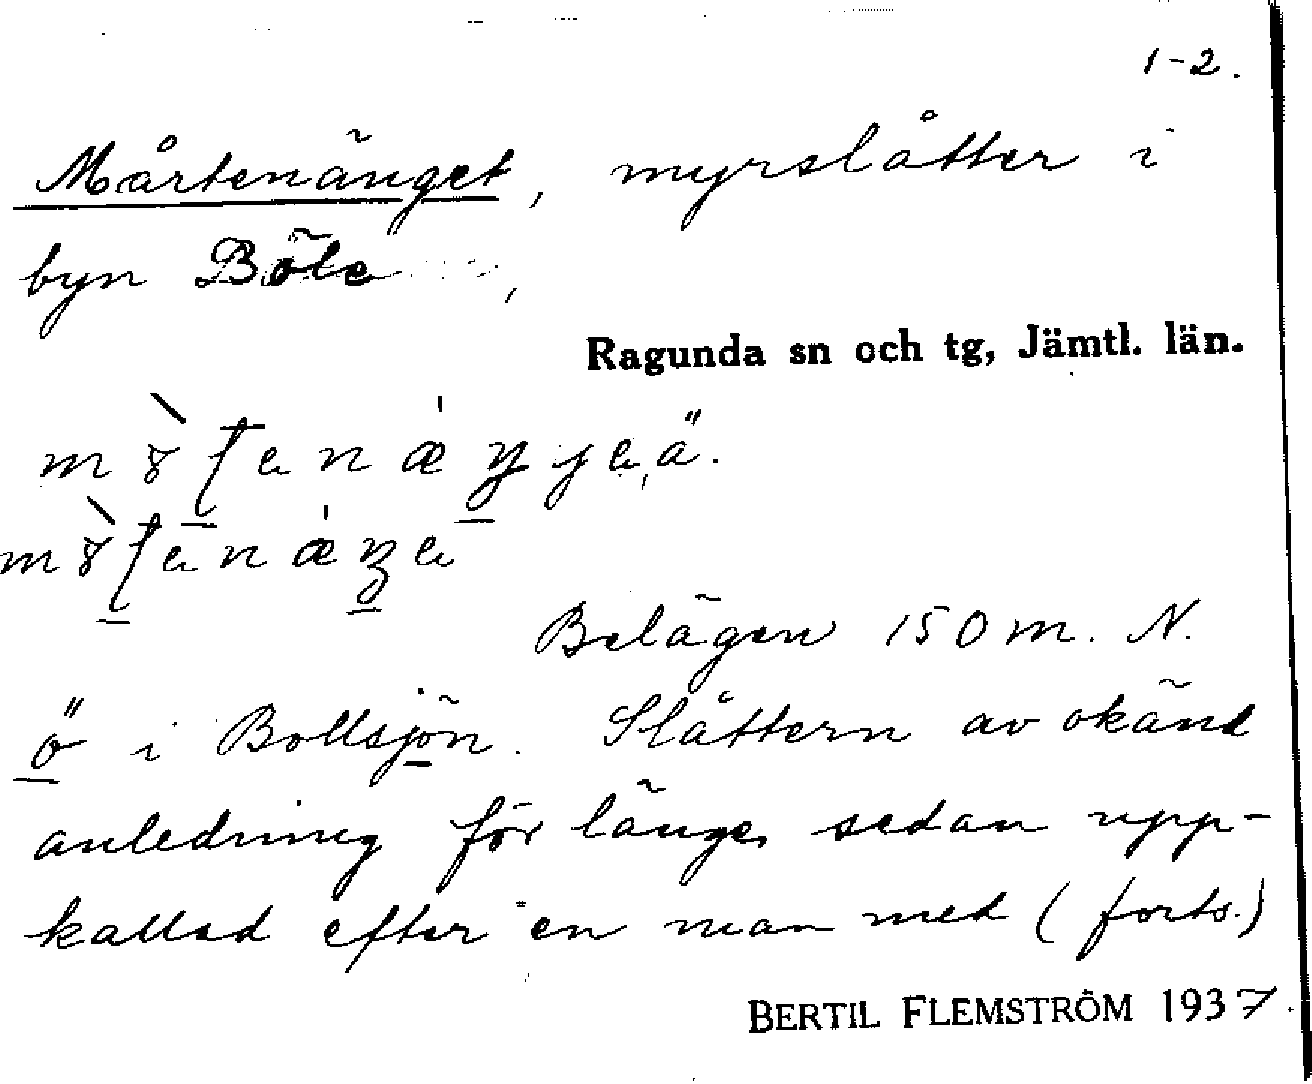 1-2.
Mårtenänget, myrslåtter i
byn Böle,
Ragunda sn och tg, Jämtl. län.
Belägen 150 m. N.
ö i Bollsjön. Slåttern av okänd
anledning för länge sedan upp-
kallad efter en man med (forts.)
BERTIL FLEMSTRÖM 1937.